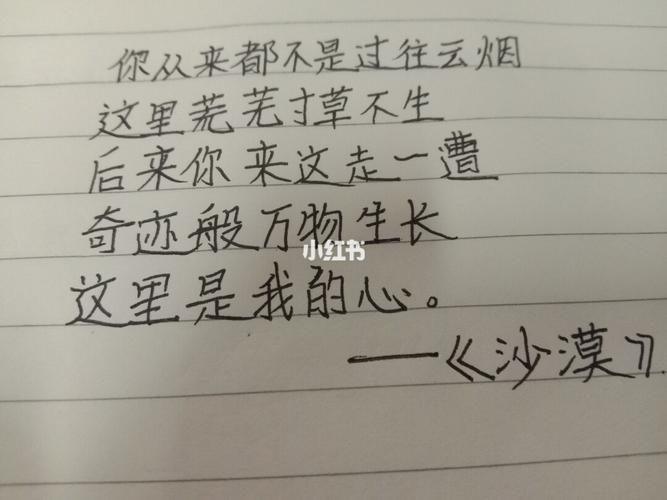 你从来都不是过往云烟
这里荒芜寸草不生
后来你来这走一遭
奇迹般万物生长
小红书
这里是我的心。
——《沙漠》